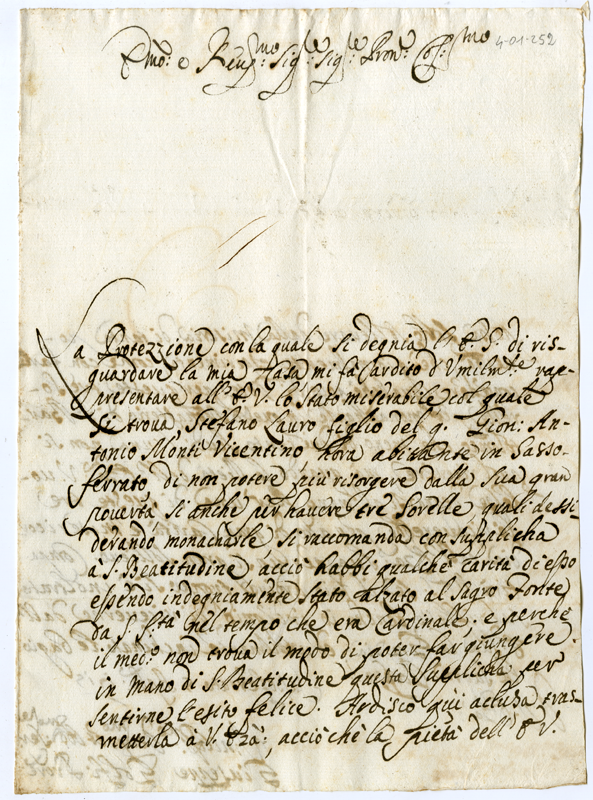 Emo: e Reumo Sig.re Sig.re Pron.e Col:mo
4-01-252
La Protezzione con la quale si degnia l'E. S. di ris-
guardare la mia Casa mi fa l'ardito d'Umilm.te rap-
presentare all'E. V. lo stato miserabile col quale
si trova, Stefano Lauro figlio del q. Gion: An-
tonio Monti Vicentino, hora abitante in Sasso-
ferrato, di non potere più risorgere dalla sua gran
povertà si anche per havere tre Sorelle quali dessi-
derando monacharle, si raccomanda con supplicha
à S. Beatitudine acciò habbi qualche carità di esso
essendo indegniamente stato alzato al Sagro Fonte
da S. S.tà nel tempo che era Cardinale; e perche
il med.o non trova il modo di poter far giungere
in mano di S. Beatitudine questa supplicha per
sentirne l'esito felice. Ardisco qui aclusa tras-
metterla à V. Eza:, acciò che la pietà dell'E. V.